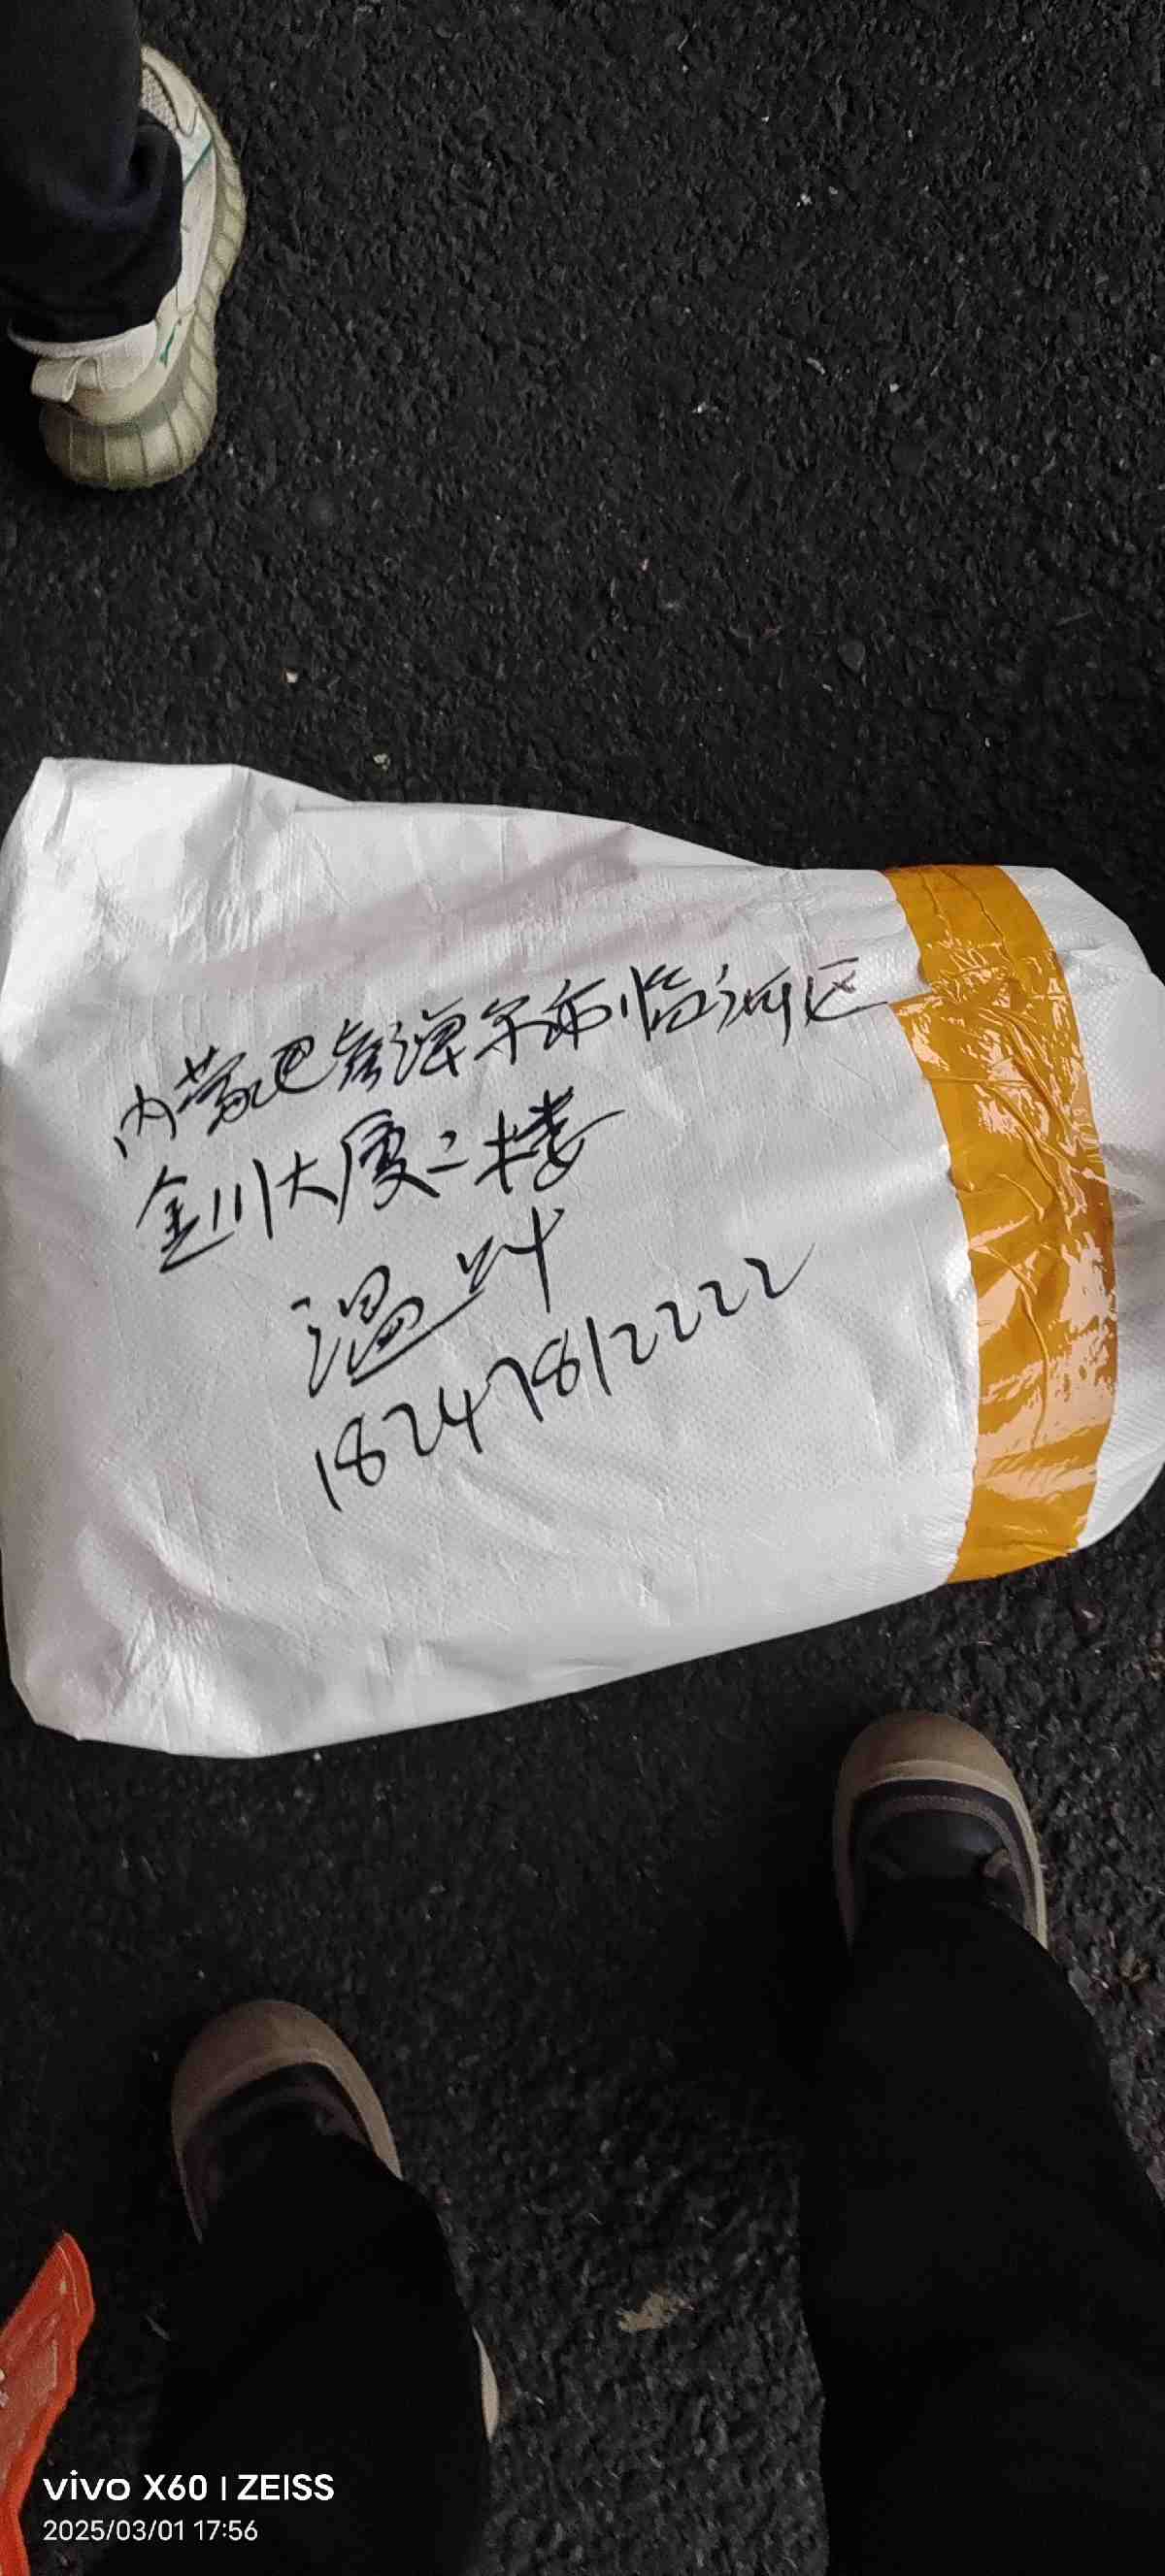 内蒙巴彦淖尔市临河区
金川大厦二楼
温叶
18247812222
vivo X60 | ZEISS
2025/03/01 17:56